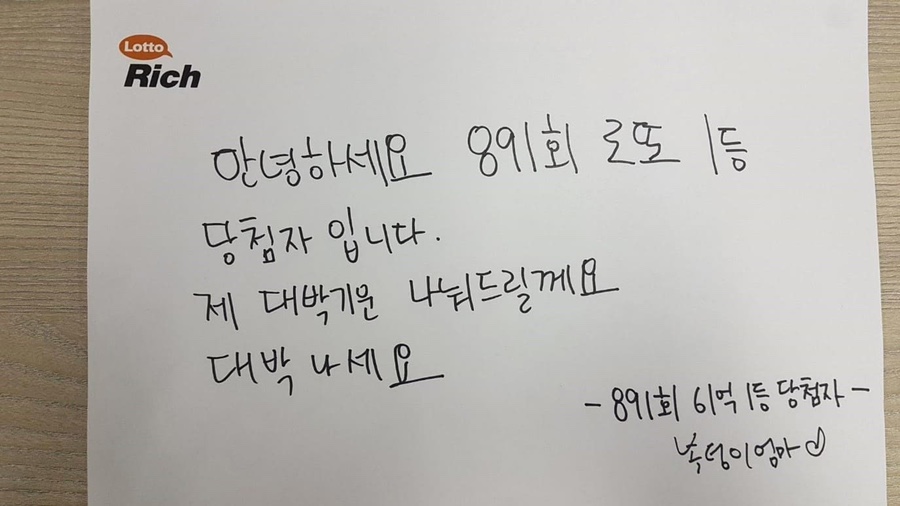 Lotto
Rich
안녕하세요 891회 로또 1등
당첨자 입니다.
제 대박기운 나눠드릴께요
대박 나세요
- 891회 61억 1등 당첨자 -
복덩이엄마